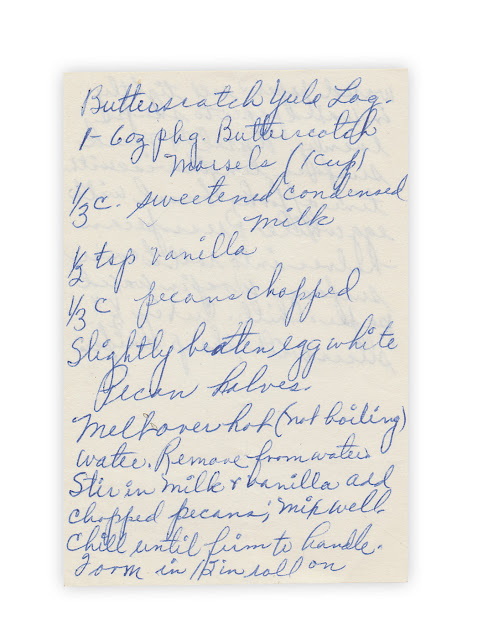 Butterscotch Yule Log.
1- 6oz pkg. Butterscotch
Morsels (1 cup)
1/3 c. sweetened condensed
milk
1/2 tsp vanilla
1/3 c pecans chopped
Slightly beaten egg white
Pecan halves.
Melt over hot (not boiling)
water. Remove from water
Stir in milk & vanilla add
chopped pecans; mix well.
Chill until firm to handle.
Form in 12 in roll on